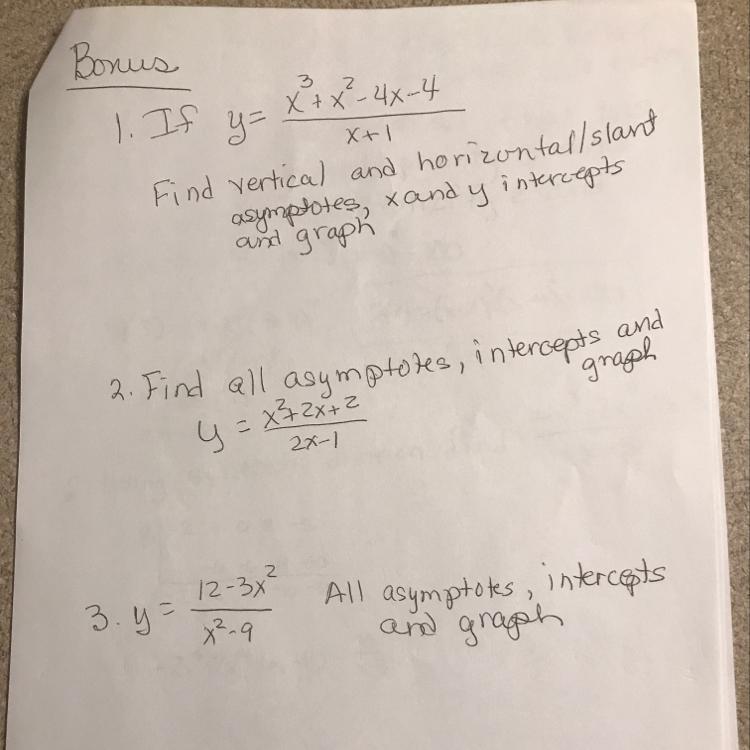 Bonus
1. If y = x³+x²-4x-4
x+1
Find vertical and horizontal/slant
asymptotes, x and y intercepts
and graph
2. Find all asymptotes, intercepts and
graph
y = x²+2x+2
2x-1
3. y = 12-3x² All asymptotes, intercepts
x²-9 and graph